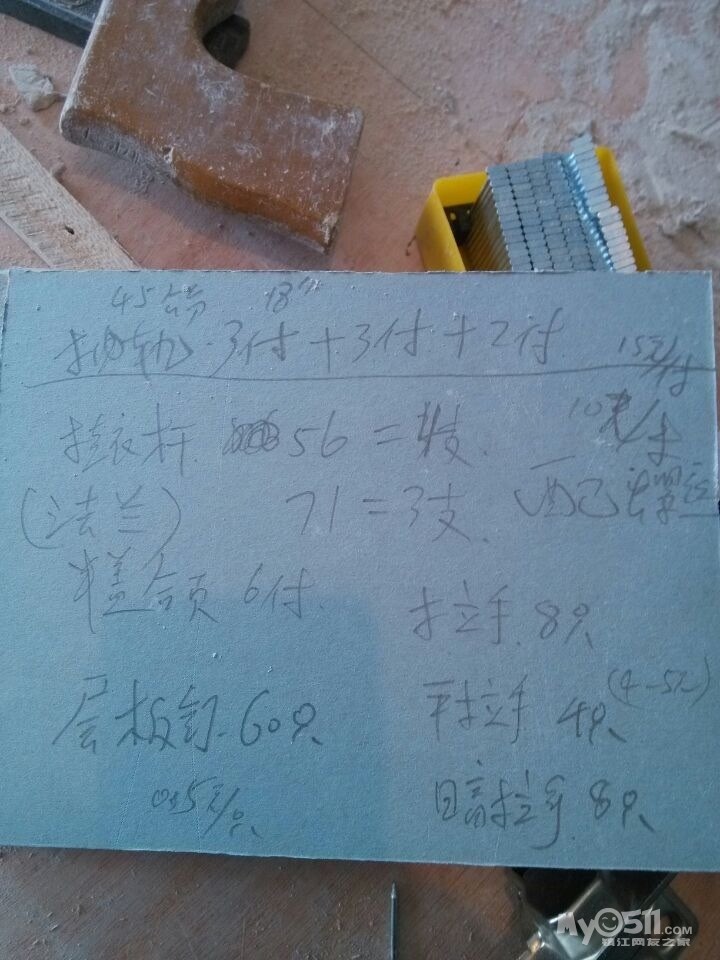 45 18寸
抽轨·3付+3付+2付 15元/付
挂衣杆 56=1支 10元/支
(法兰) 71=3支 配螺丝
半盖合页 6付
拉手 8只
层板钉 60只 平拉手 4只 (4-5元)
0.5元/只 暗拉手 8只
My0511.COM
镇江网友之家